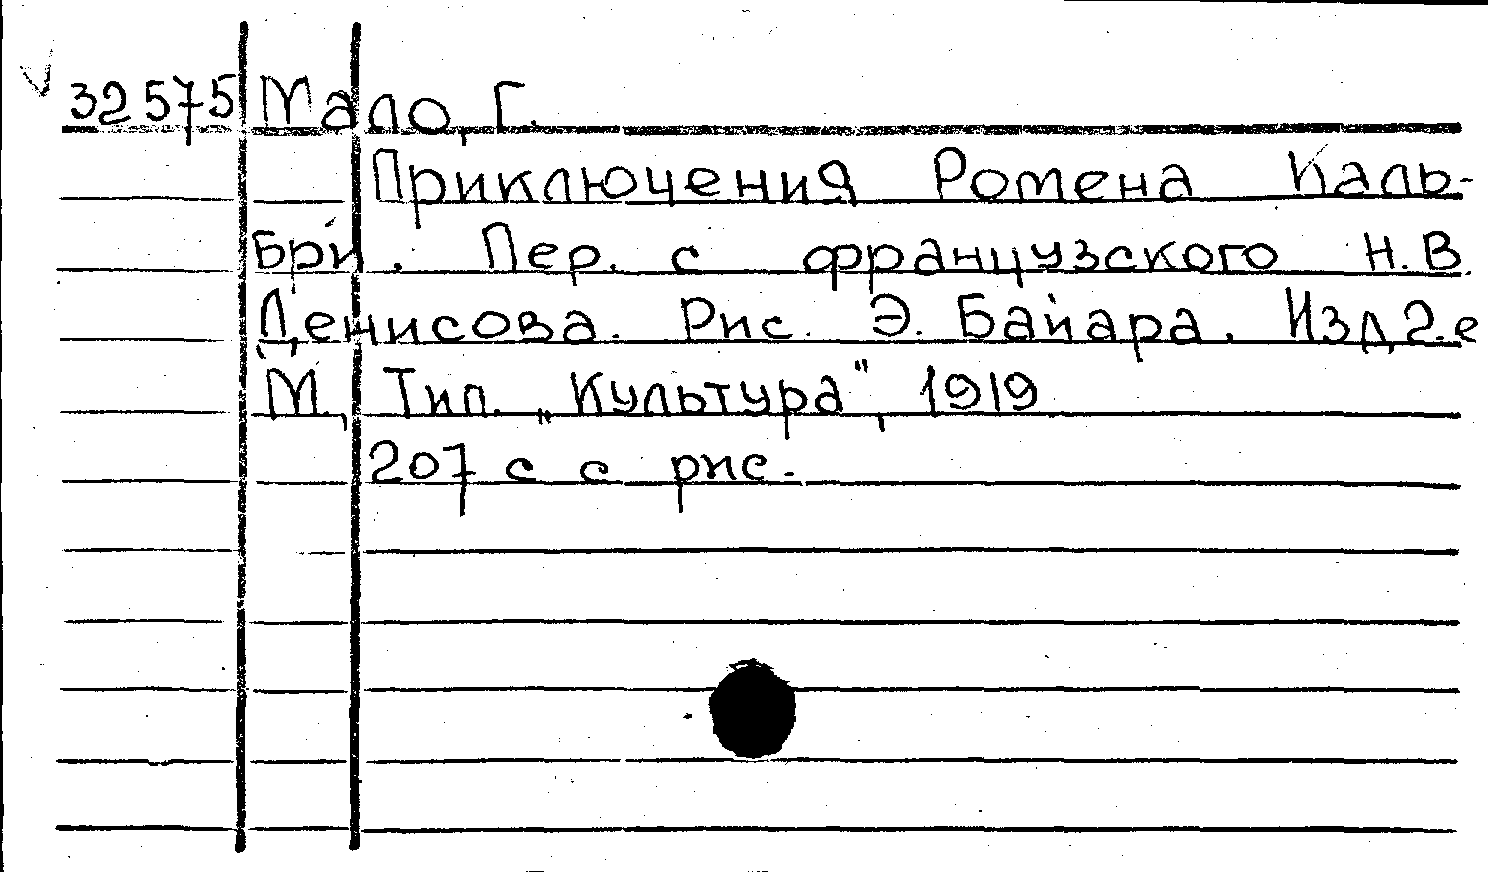 32575 Мало, Г.
Приключения Ромена Каль-
бри. Пер. с французского Н.В.
Денисова. Рис. Э. Байара. Изд 2-е
М., Тип. „Культура", 1919
207 с с рис.